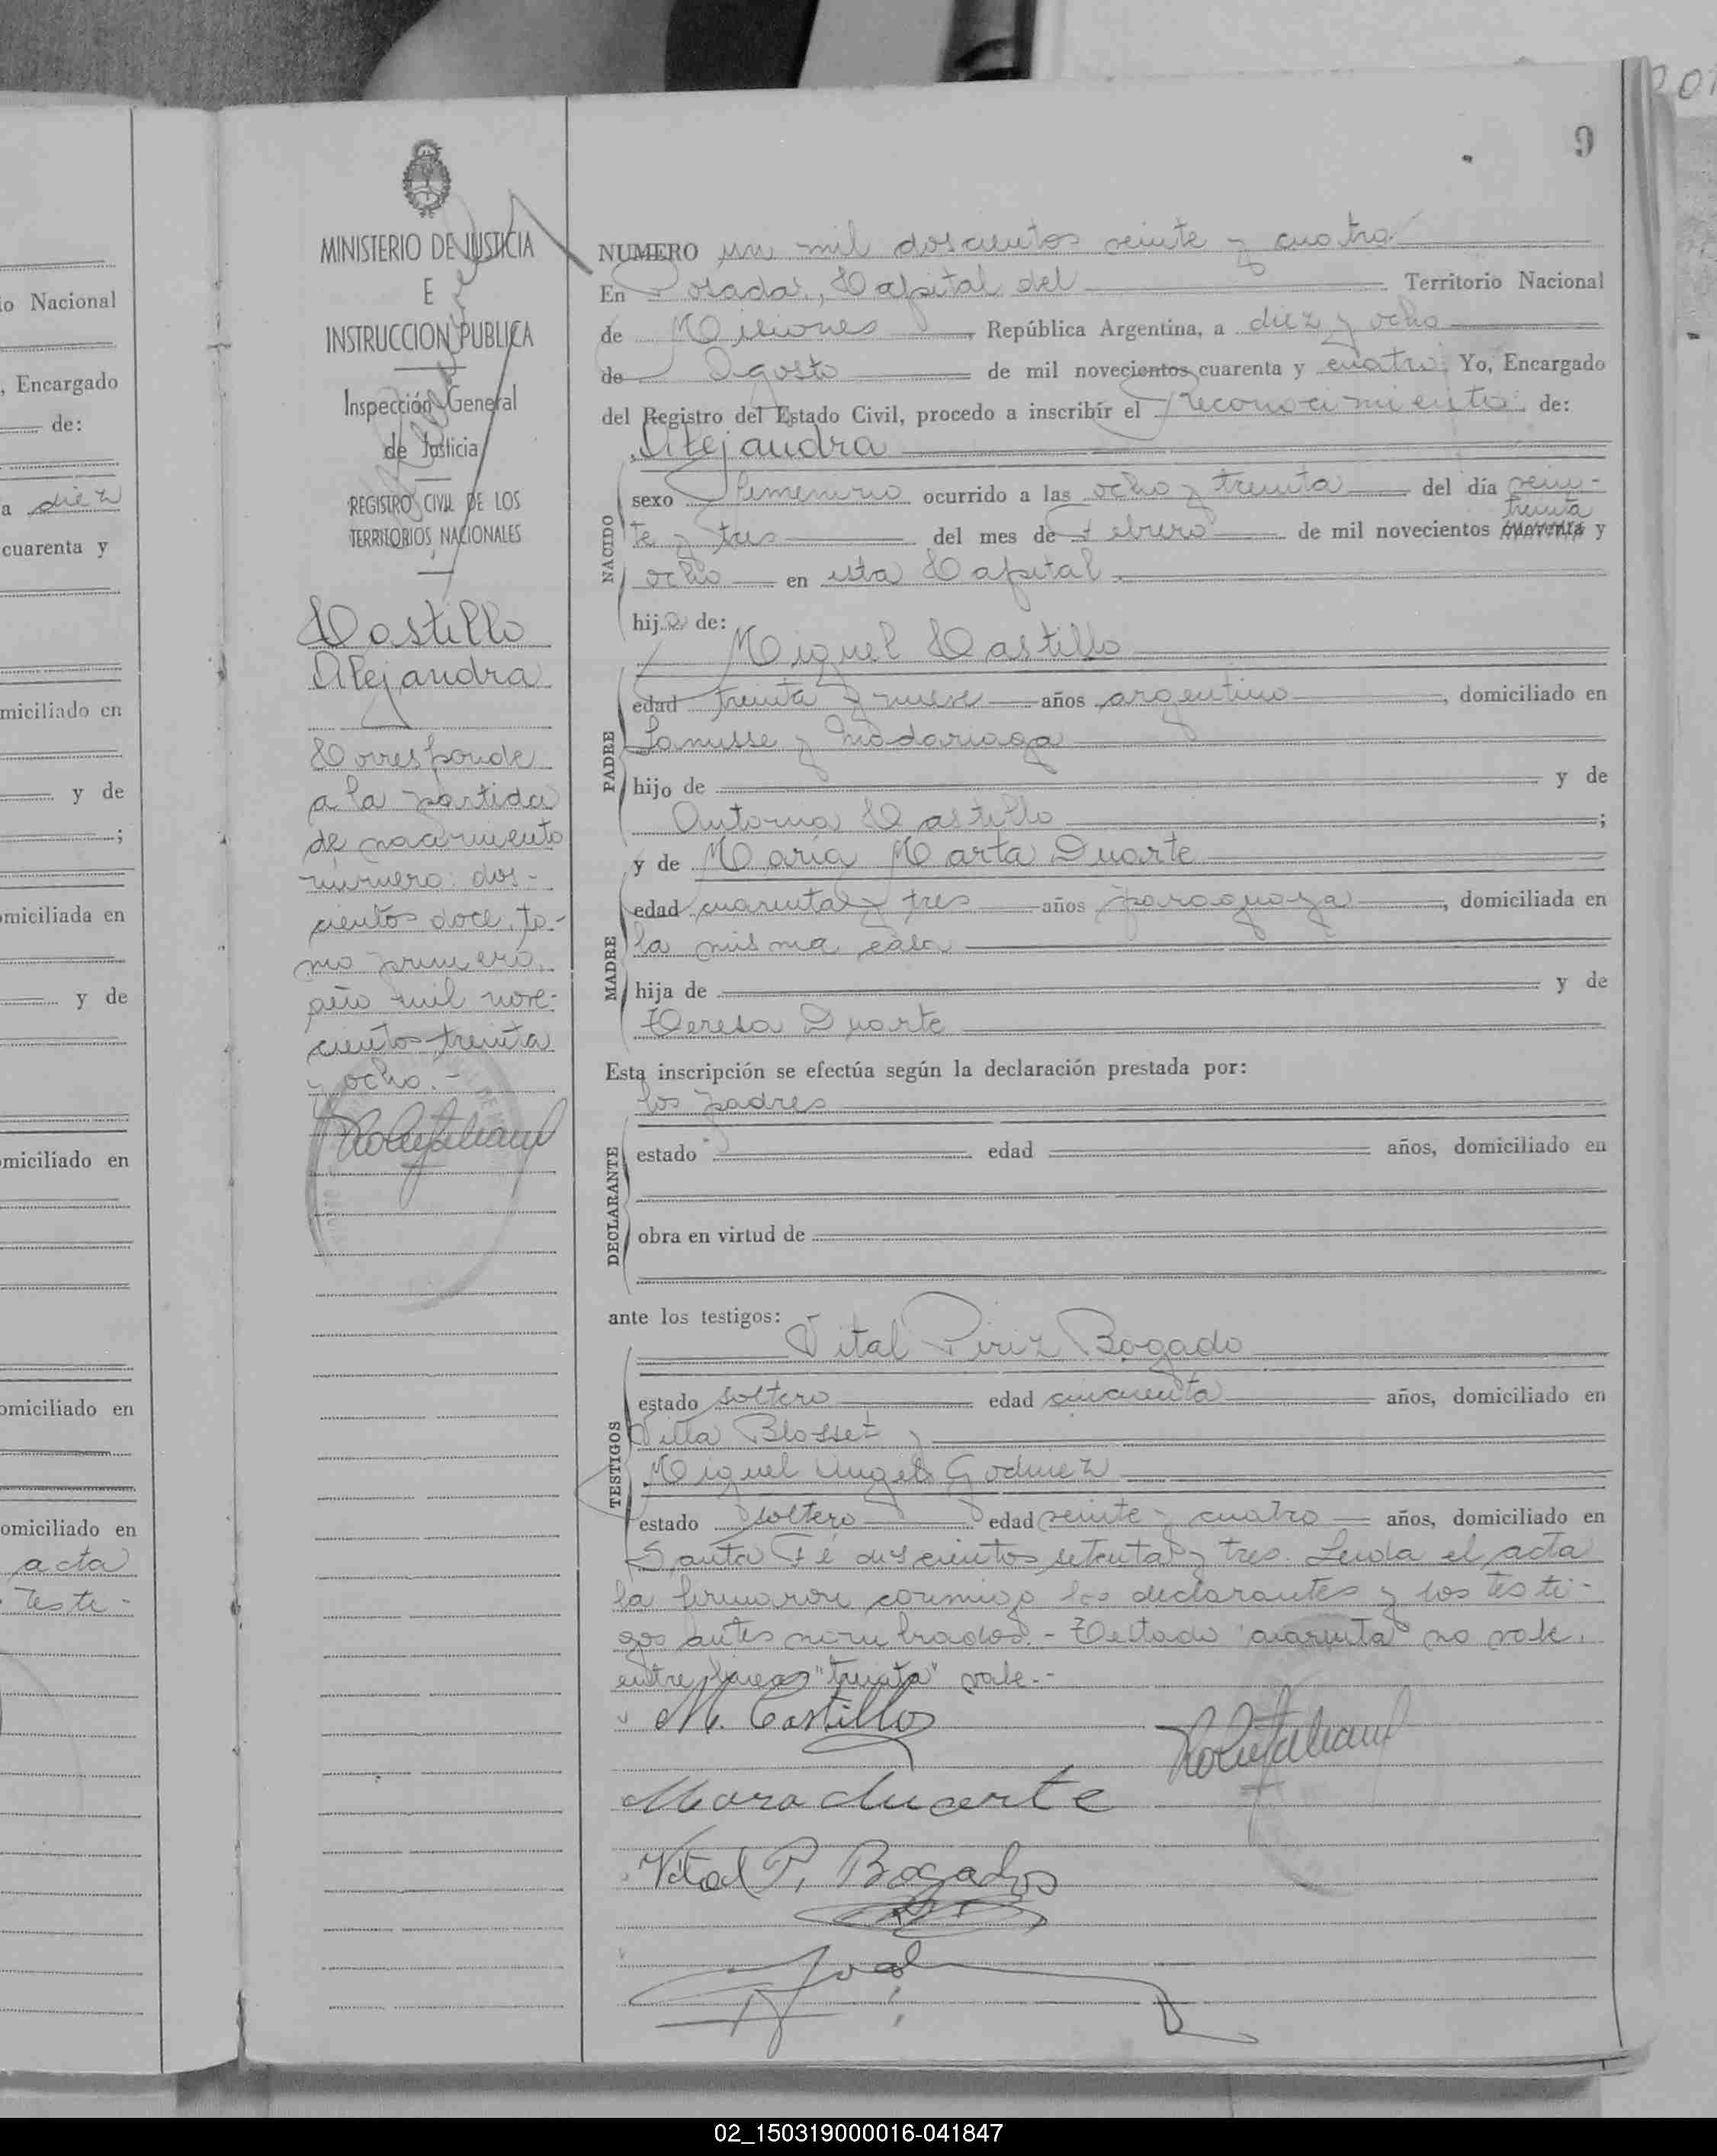 io Nacional
, Encargado
de:
a diez
cuarenta y
miciliado en
y de
;
omiciliada en
y de
omiciliado en
omiciliado en
omiciliado en
acta
Testi-
MINISTERIO DE JUSTICIA
E
INSTRUCCION PUBLICA
Inspección General
de Justicia
REGISTRO CIVIL DE LOS
TERRITORIOS NACIONALES
Castillo
Alejandra
Corresponde
a la partida
de nacimiento
número: dos-
cientos doce, to-
mo primero,
año mil nove-
cientos treinta
y ocho.-
9
NUMERO un mil doscientos veinte y cuatro
En Posadas, Capital del Territorio Nacional
de Misiones, República Argentina, a diez y ocho
de Agosto de mil novecientos cuarenta y cuatro Yo, Encargado
del Registro del Estado Civil, procedo a inscribir el reconocimiento de:
Alejandra
NACIDO
sexo femenino ocurrido a las ocho y treinta del día vein-
treinta
te y tres del mes de Febrero de mil novecientos cuarenta y
ocho en esta Capital.
hija de:
Miguel Castillo
PADRE
edad treinta y nueve años argentino, domiciliado en
Lanusse y Madariaga
hijo de y de
Antonia Castillo ;
y de María Marta Duarte
MADRE
edad cuarenta y tres años paraguaya, domiciliada en
la misma casa
hija de y de
Teresa Duarte
Esta inscripción se efectúa según la declaración prestada por:
los padres
DECLARANTE
estado edad años, domiciliado en
obra en virtud de
ante los testigos:
Vital Piriz Bogado
TESTIGOS
estado soltero edad cincuenta años, domiciliado en
Villa Blosset y
Miguel Angel Godinez
estado soltero edad veinte y cuatro años, domiciliado en
Santa Fé doscientos setenta y tres. Leida el acta
la firmaron conmigo los declarantes y los testi-
gos antes nombrados.- Testado "cuarenta" no vale.
entre lineas "treinta" vale.-
M. Castillo
Mara duarte
Vital P. Bogado
02_150319000016-041847